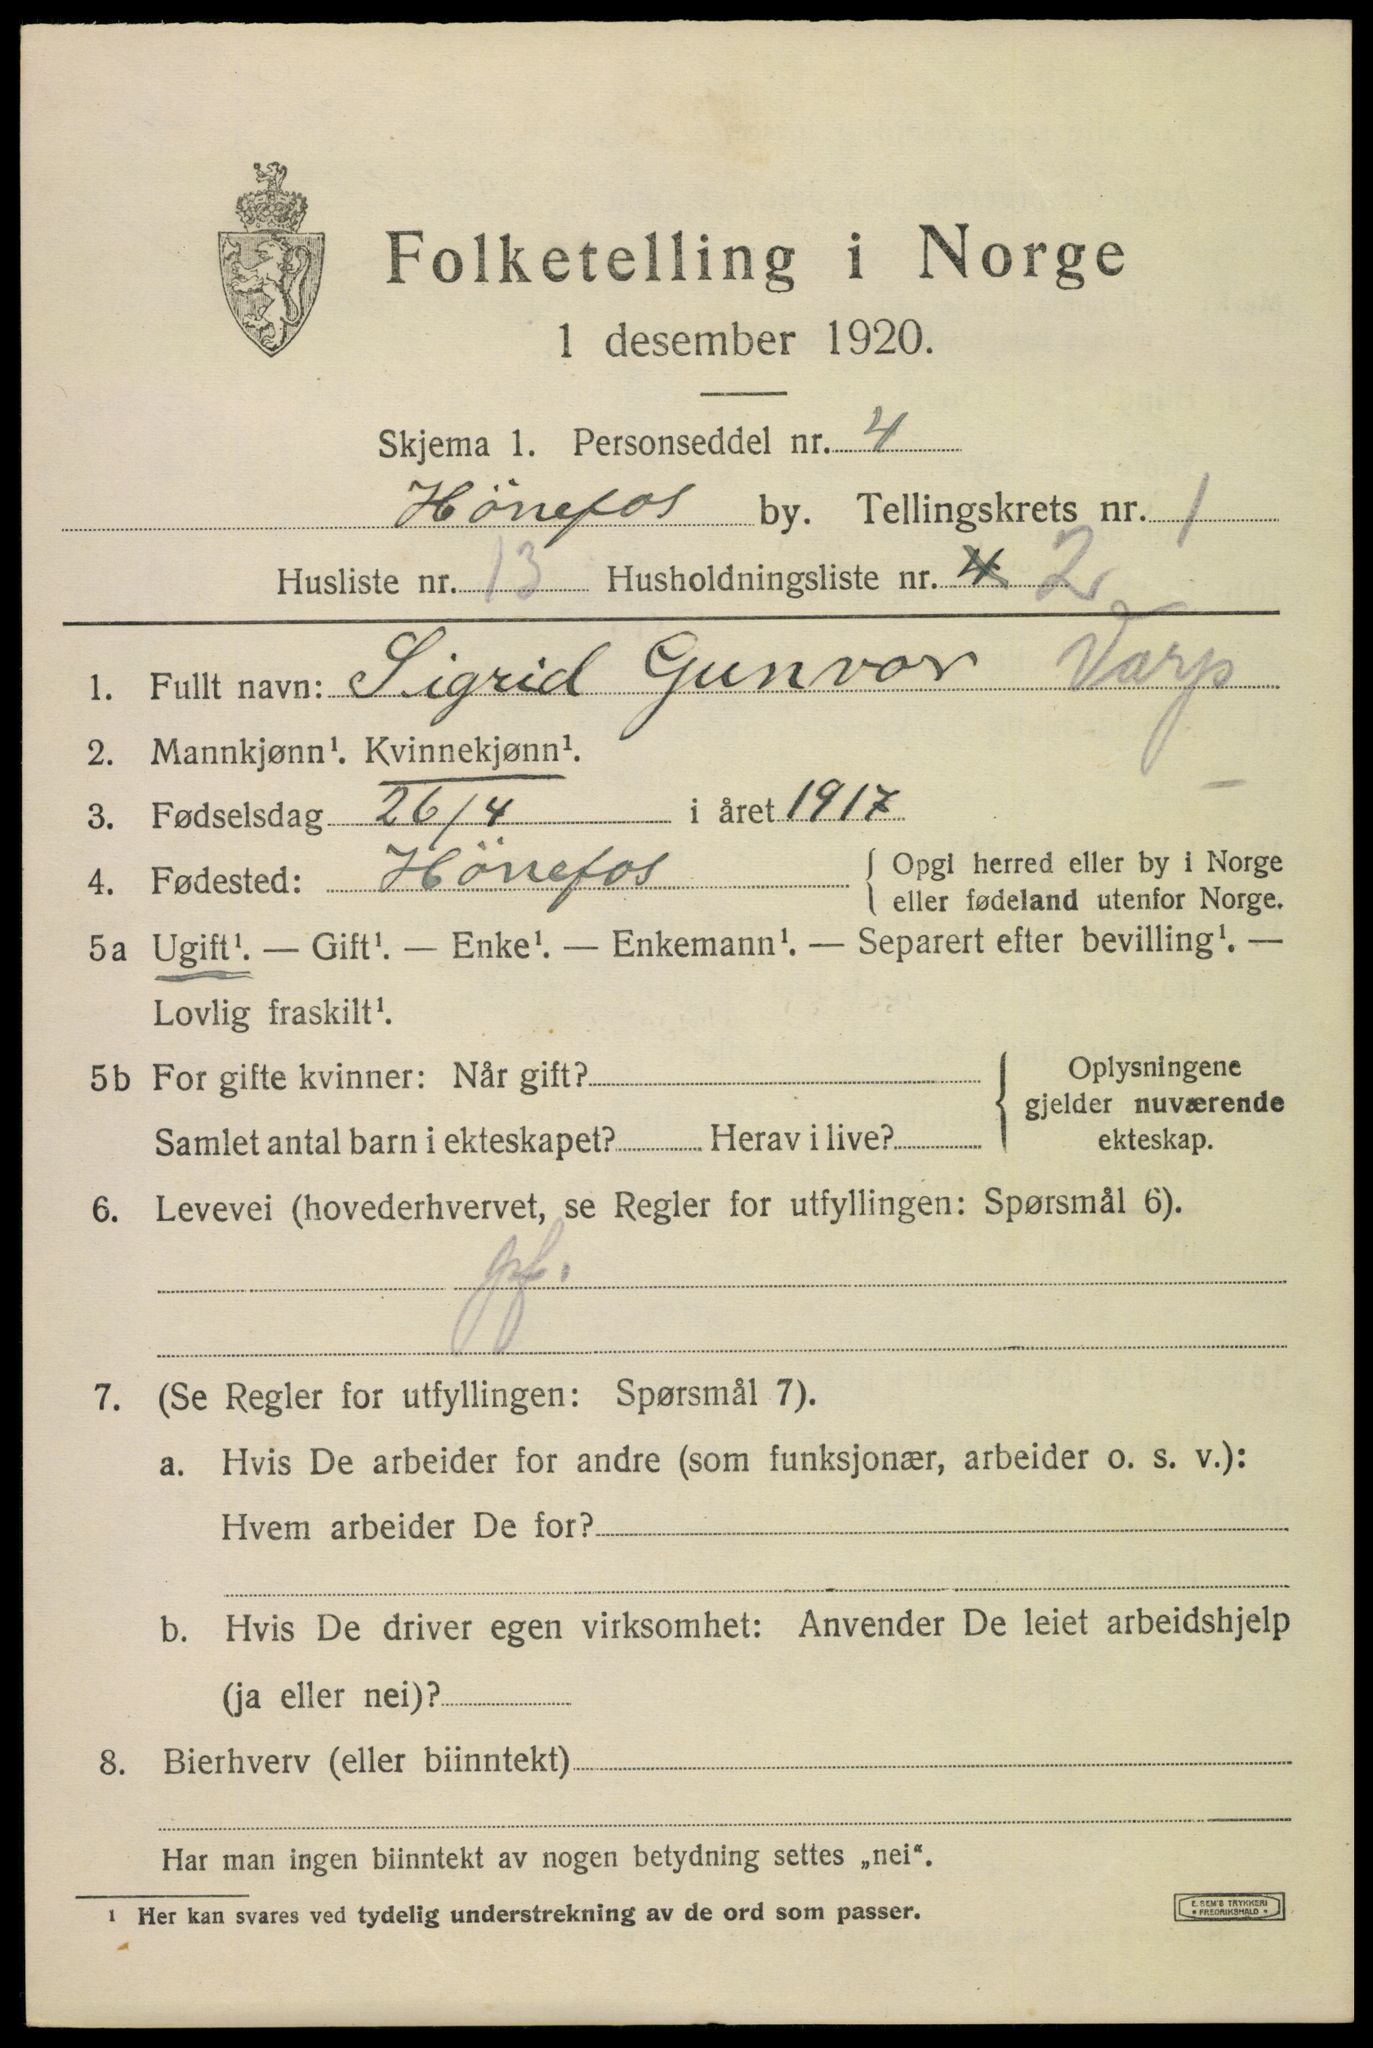 Folketelling i Norge
1 desember 1920.
Skjema 1. Personseddel nr. 4
Hönefos by. Tellingskrets nr. 1
Husliste nr. 13 Husholdningsliste nr. 4 2
1. Fullt navn: Sigrid Gunvor Varp
2. Mannkjønn¹. Kvinnekjønn¹.
3. Fødselsdag 26/4 i året 1917
4. Fødested: Hönefos { Opgi herred eller by i Norge
eller fødeland utenfor Norge.
5a Ugift¹. — Gift¹. — Enke¹. — Enkemann¹. — Separert efter bevilling¹. —
Lovlig fraskilt¹.
5b For gifte kvinner: Når gift? { Oplysningene
gjelder nuværende
Samlet antal barn i ekteskapet? Herav i live? ekteskap.
6. Levevei (hovederhvervet, se Regler for utfyllingen: Spørsmål 6).
pf.
7. (Se Regler for utfyllingen: Spørsmål 7).
a. Hvis De arbeider for andre (som funksjonær, arbeider o. s. v.):
Hvem arbeider De for?
b. Hvis De driver egen virksomhet: Anvender De leiet arbeidshjelp
(ja eller nei)?
8. Bierhverv (eller biinntekt)
Har man ingen biinntekt av nogen betydning settes „nei“.
¹ Her kan svares ved tydelig understrekning av de ord som passer.
E. SEM'S TRYKKERI
* FREDRIKSHALD *